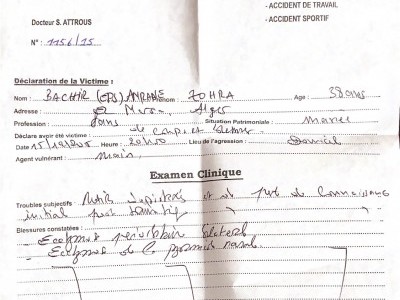 - ACCIDENT DE TRAVAIL
Docteur S. ATTROUS
- ACCIDENT SPORTIF
N° : 1156/15
Déclaration de la Victime :
Nom : BACHIR (EPS) Prénom : ZOHRA Age : 38 ans
Adresse : Alger
Profession : sans Situation Patrimoniale : Mariée
Déclare avoir été victime : de coups et
Date : Heure : 20h00 Lieu de l'agression : Domicile
Agent vulnérant : Main
Examen Clinique
Troubles subjectifs : et de perte de connaissance
initial post
Blessures constatées :
- Ecchymose périorbitaire bilatéral
- Ecchymose de la pyramide nasale